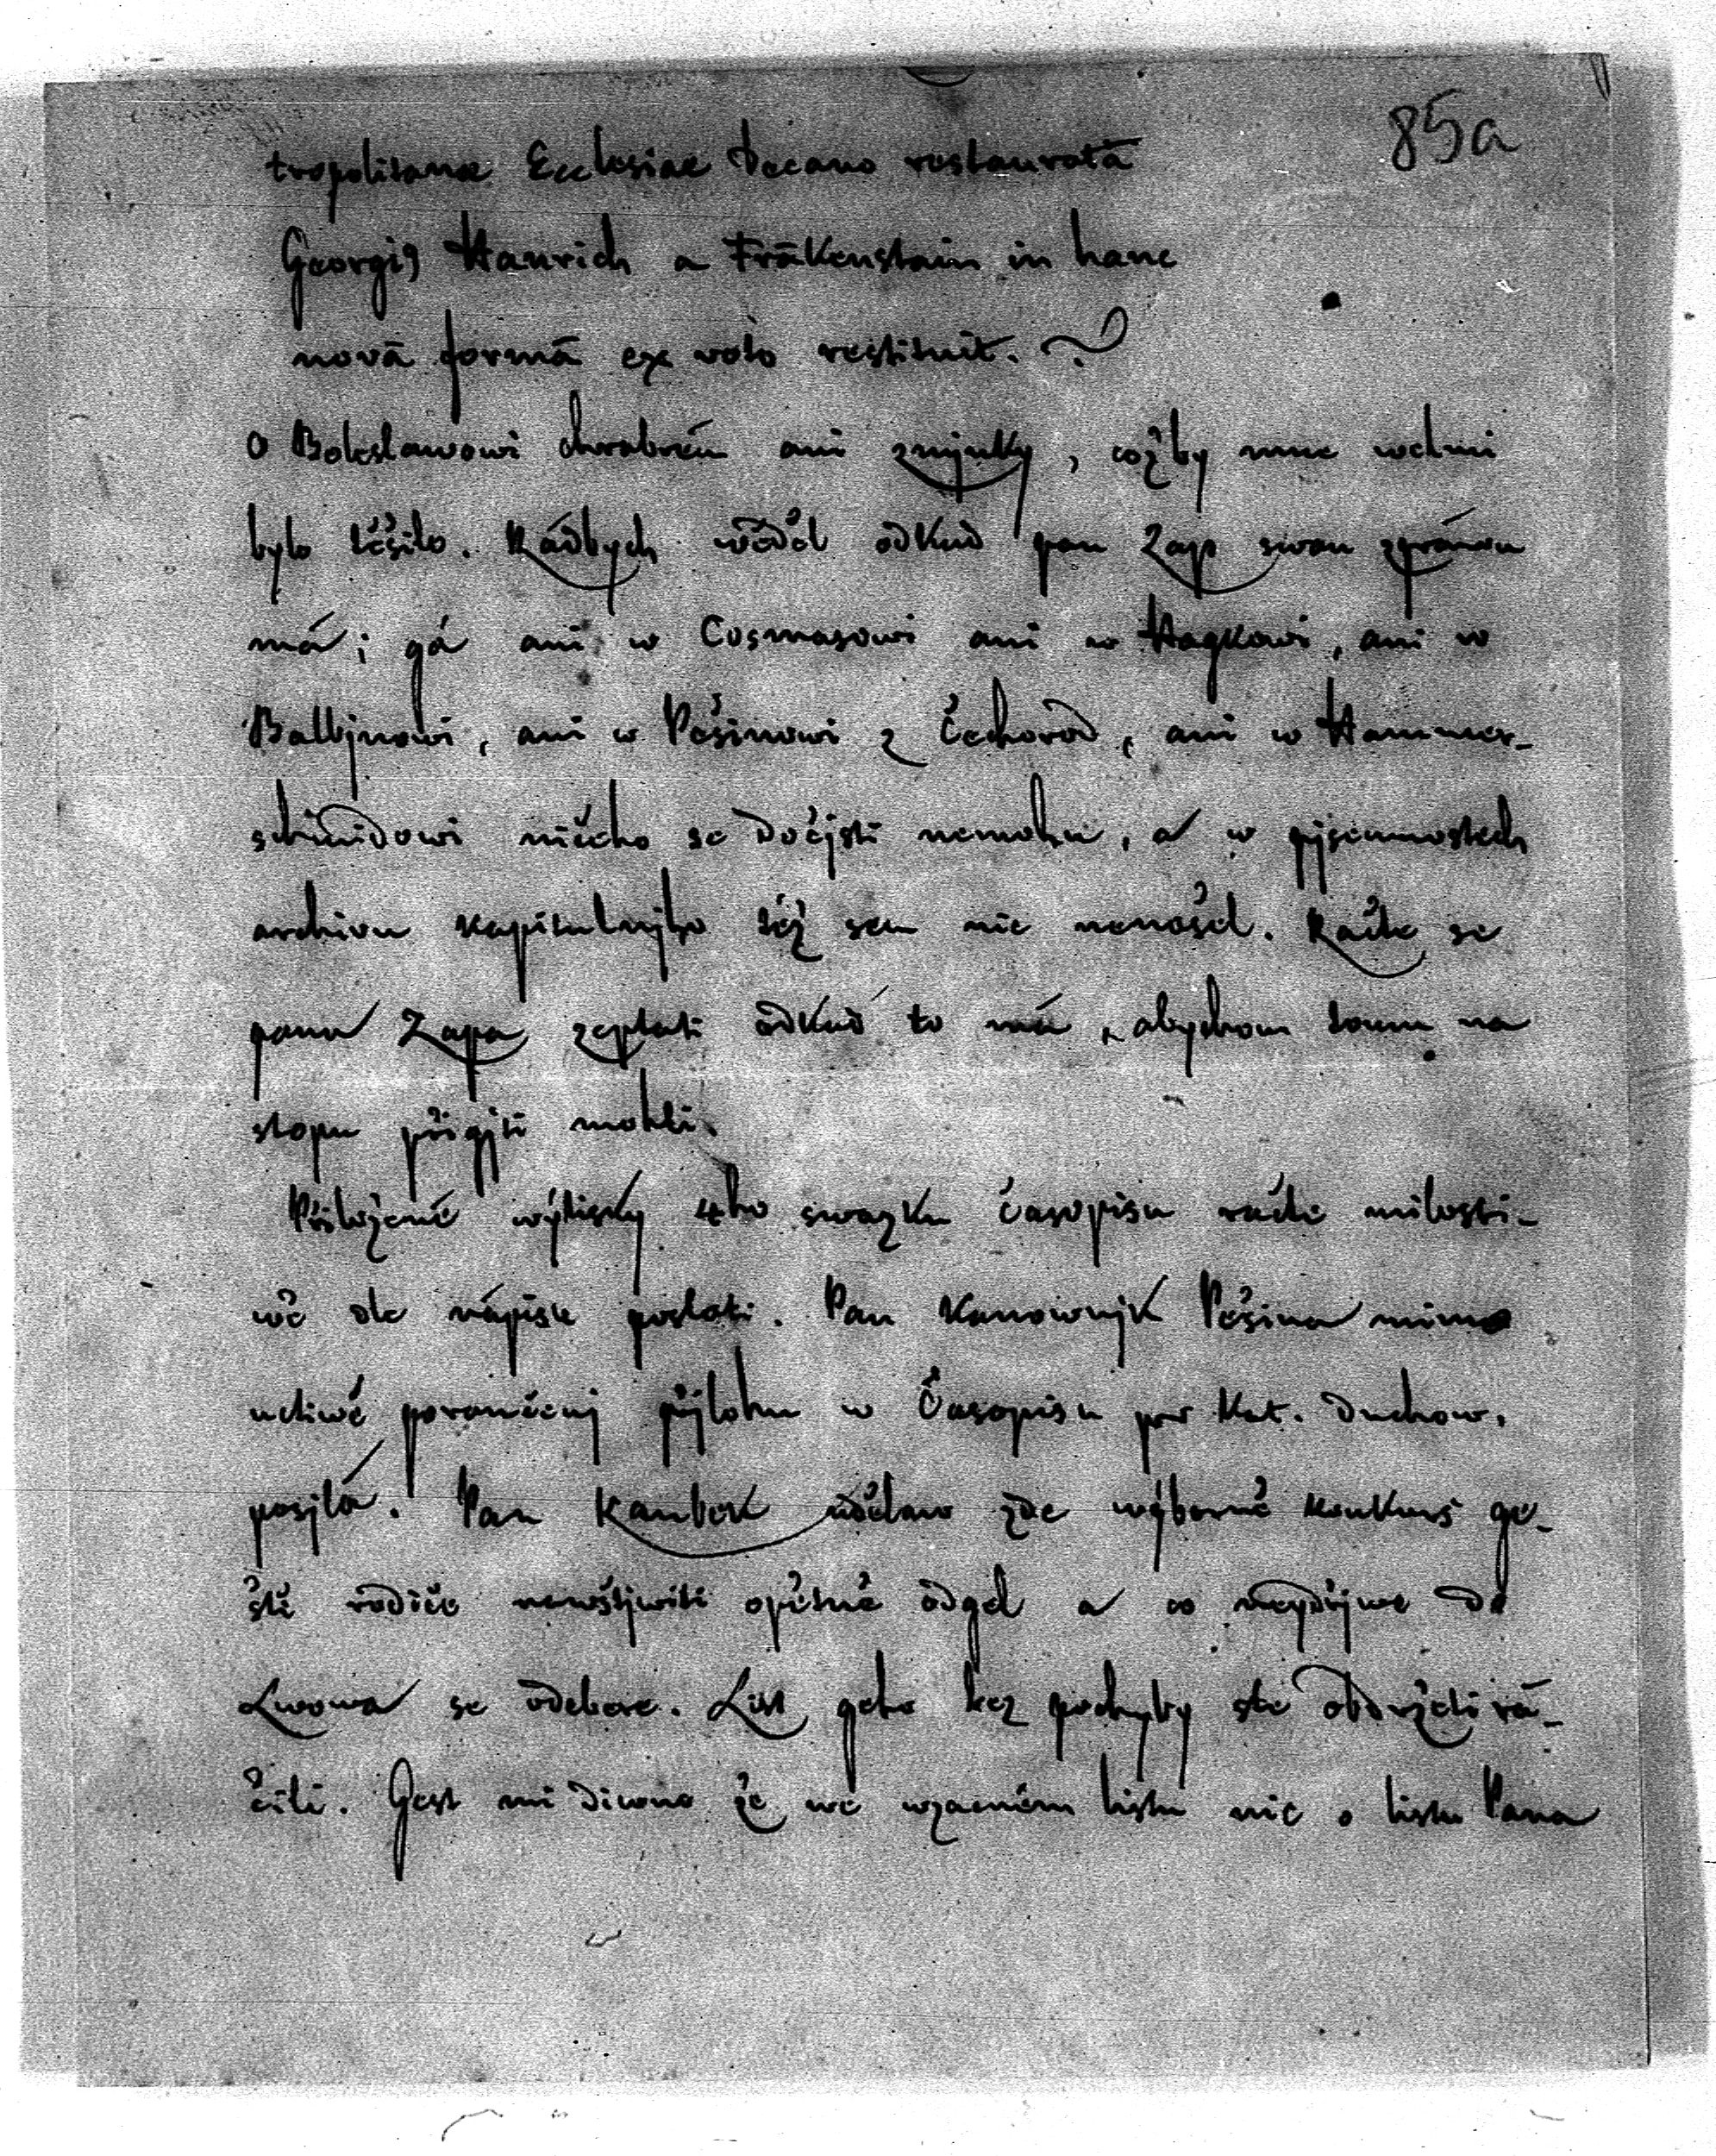 85a
tropolitanae Ecclesiae Decano restauratā
Georgi9 Hanrich a Frākenstain in hanc
novā formā ex voto restituit.
O Boleslawowi chrabrém ani zmjnky, cožby mne welmi
bylo těšilo. Rádbych wěděl odkud pan Zap swou zpráwu
má; gá ani w Cosmasowi ani w Hagkowi, ani w
Balbjnowi, ani w Pešinowi z Čechorod, ani w Hammer-
schmidowi ničeho se dočjsti nemohu, a w pjsemnostech
archivu kapitulnjho též sem nic nenošel. Račte se
pana Zapa zeptati odkud to má, abychom tomu na
stopu přigjti mohli.
Přiložené wýtisky 4ho swazku Časopisu račte milosti-
wě dle nápisu poslati. Pan Kanownjk Pešina mimo
uctiwé poraučenj přjlohu w Časopisu pro Kat. Duchow.
posjlá. Pan Kaubek udělaw zde wýborně konkurs ge-
ště rodiče nawštjwiti opětně odgel a co neydřjwe do
Lwowa se odebere. List geho bez pochyby ste obdrželi rá-
čili. Gest mi diwno že we wzacném listu nic o listu Pana